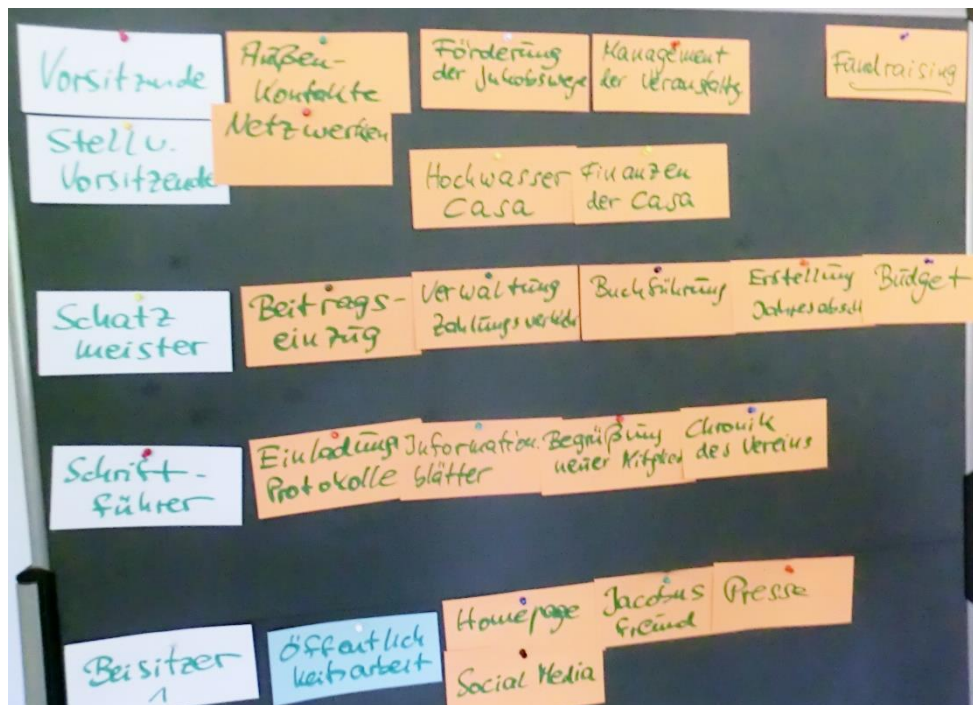 Vorsitzende
Außen-
kontakte
Förderung
der Jakobswege
Management
der Veranstaltg
Fundraising
Stellv.
Vorsitzende
Netzwerken
Hochwasser
Casa
Finanzen
der Casa
Schatz
meister
Beitrags-
einzug
Verwaltung
Zahlungsverkehr
Buchführung
Erstellung
Jahresabschl
Budget
Schrift-
führer
Einladung
Protokolle
Information.
blätter
Begrüßung
neuer Mitglied
Chronik
des Vereins
Beisitzer
1
öffentlich
keitsarbeit
Homepage
Social Media
Jacobus
freund
Presse